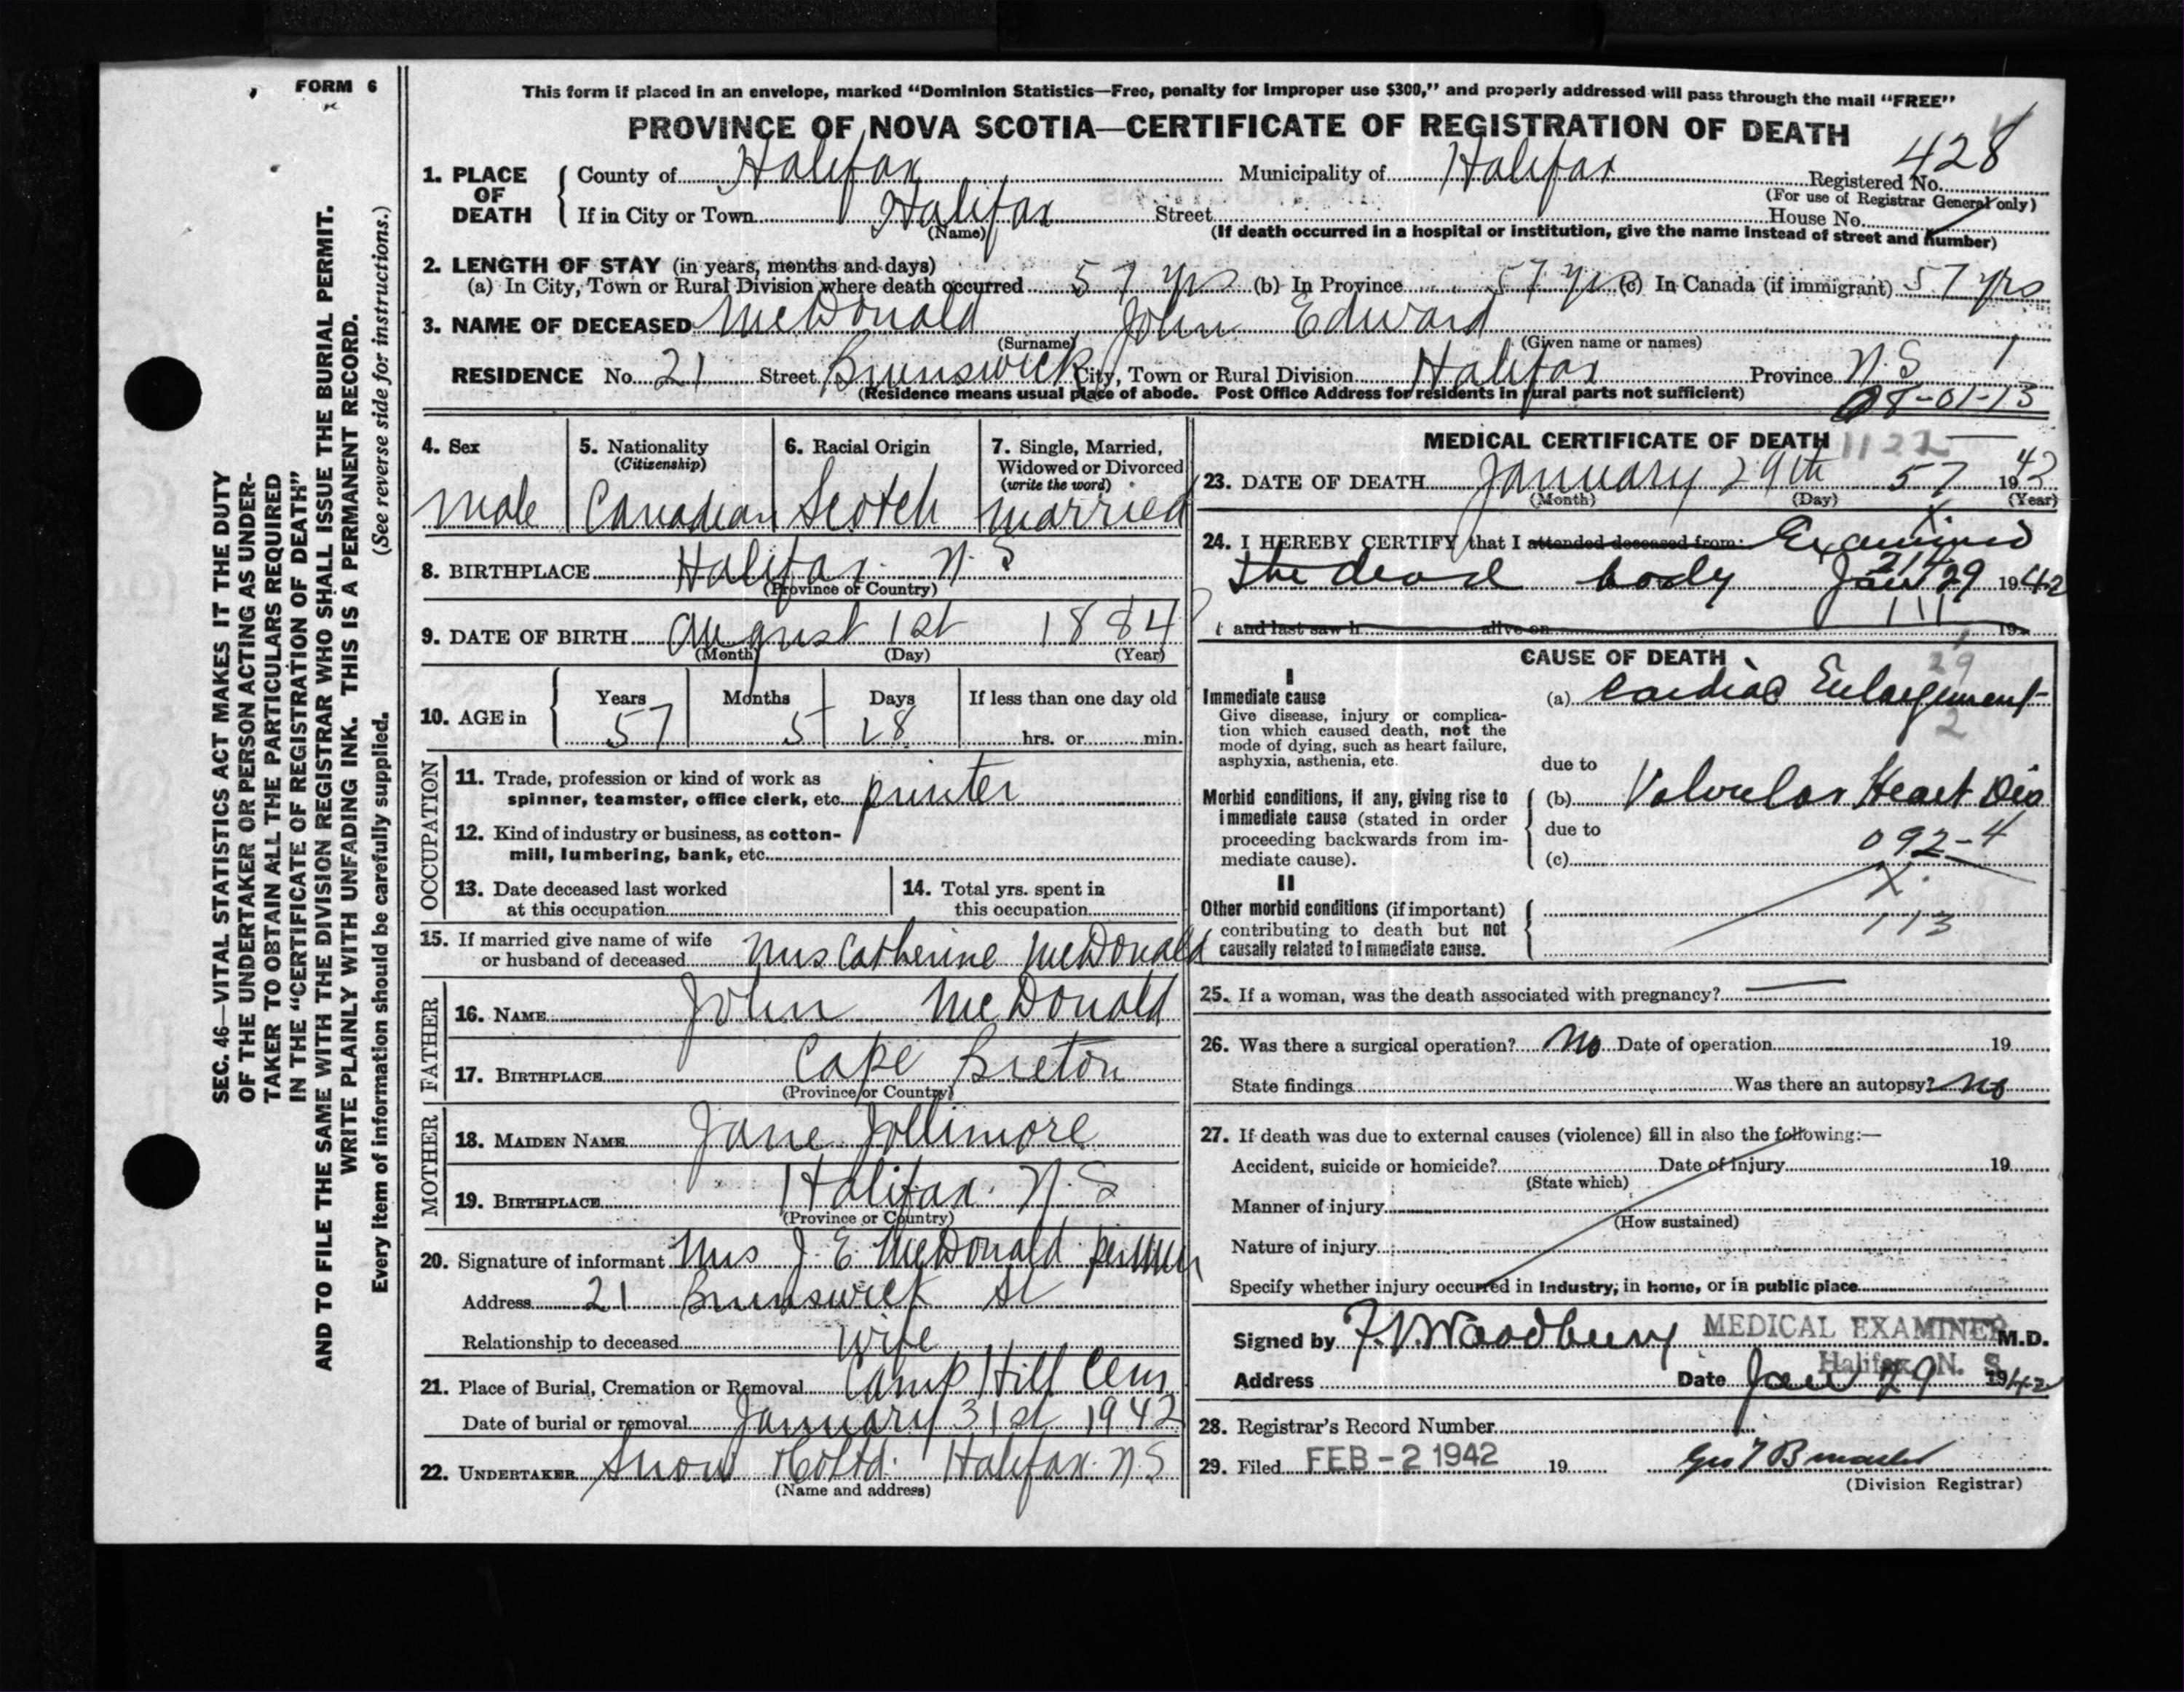 FORM 6
SEC. 46—VITAL STATISTICS ACT MAKES IT THE DUTY
OF THE UNDERTAKER OR PERSON ACTING AS UNDER-
TAKER TO OBTAIN ALL THE PARTICULARS REQUIRED
IN THE "CERTIFICATE OF REGISTRATION OF DEATH"
AND TO FILE THE SAME WITH THE DIVISION REGISTRAR WHO SHALL ISSUE THE BURIAL PERMIT.
WRITE PLAINLY WITH UNFADING INK. THIS IS A PERMANENT RECORD.
Every item of information should be carefully supplied. (See reverse side for instructions.)
This form if placed in an envelope, marked "Dominion Statistics—Free, penalty for improper use $300," and properly addressed will pass through the mail "FREE"
PROVINCE OF NOVA SCOTIA—CERTIFICATE OF REGISTRATION OF DEATH
428
1. PLACE OF DEATH County of Halifax Municipality of Halifax Registered No.
(For use of Registrar General only)
If in City or Town Halifax Street House No.
(Name) (If death occurred in a hospital or institution, give the name instead of street and number)
2. LENGTH OF STAY (in years, months and days)
(a) In City, Town or Rural Division where death occurred 57 yrs (b) In Province 57 yrs (c) In Canada (if immigrant) 57 yrs
3. NAME OF DECEASED McDonald John Edward
(Surname) (Given name or names)
RESIDENCE No. 21 Street Brunswick City, Town or Rural Division Halifax Province N.S
(Residence means usual place of abode. Post Office Address for residents in rural parts not sufficient)
08-01-13
4. Sex 5. Nationality (Citizenship) 6. Racial Origin 7. Single, Married, Widowed or Divorced (write the word)
Male Canadian Scotch Married
8. BIRTHPLACE Halifax N.S
(Province or Country)
9. DATE OF BIRTH August 1st 1884
(Month) (Day) (Year)
10. AGE in Years Months Days If less than one day old
57 5 28 hrs. or min.
OCCUPATION
11. Trade, profession or kind of work as
spinner, teamster, office clerk, etc. printer
12. Kind of industry or business, as cotton-
mill, lumbering, bank, etc.
13. Date deceased last worked
at this occupation
14. Total yrs. spent in
this occupation
15. If married give name of wife
or husband of deceased Mrs Catherine McDonald
FATHER
16. NAME John McDonald
17. BIRTHPLACE Cape Breton
(Province or Country)
MOTHER
18. MAIDEN NAME Jane Jollimore
19. BIRTHPLACE Halifax. N S
(Province or Country)
20. Signature of informant Mrs J. E. McDonald
Address 21 Brunswick St
Relationship to deceased wife
21. Place of Burial, Cremation or Removal Camp Hill Cem
Date of burial or removal January 31st 1942
22. UNDERTAKER Snow & Co Ltd. Halifax. N S
(Name and address)
MEDICAL CERTIFICATE OF DEATH 1122
23. DATE OF DEATH January 29th 57 1942
(Month) (Day) (Year)
24. I HEREBY CERTIFY that I attended deceased from: Examined
214
the dead body Jan 29 1942
111
and last saw h alive on 19
CAUSE OF DEATH
29
I
Immediate cause
Give disease, injury or complica-
tion which caused death, not the
mode of dying, such as heart failure,
asphyxia, asthenia, etc.
(a) Cardiac Enlargement
2
due to
Morbid conditions, if any, giving rise to
immediate cause (stated in order
proceeding backwards from im-
mediate cause).
(b) Valvular Heart Dis
due to
092-4
(c)
X
II
Other morbid conditions (if important)
contributing to death but not
causally related to immediate cause.
113
25. If a woman, was the death associated with pregnancy?
26. Was there a surgical operation? No Date of operation 19
State findings Was there an autopsy? No
27. If death was due to external causes (violence) fill in also the following:—
Accident, suicide or homicide? Date of injury 19
(State which)
Manner of injury
(How sustained)
Nature of injury
Specify whether injury occurred in industry, in home, or in public place
Signed by F.V. Woodbury MEDICAL EXAMINER M.D.
Halifax, N. S.
Address Date Jan 29 1942
28. Registrar's Record Number
29. Filed FEB - 2 1942 19
(Division Registrar)